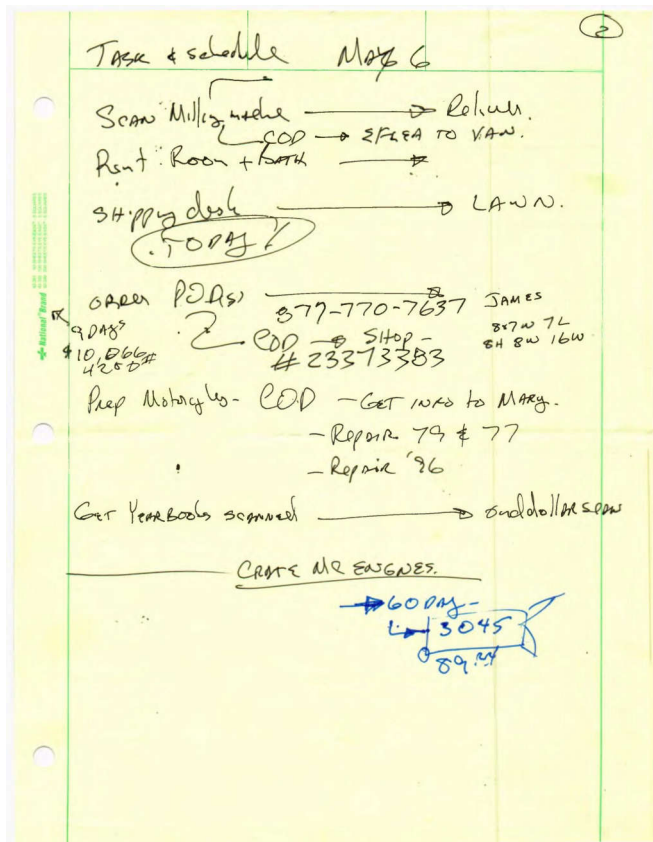 2
Task & schedule MAY 6
SCAN Milling machine → Return.
COD → & FLEA TO VAN.
Rent: Room + BATH →
SHipping desk → LAWN.
TODAY!
ORDER PODS → 877-770-7637 JAMES
9 DAYS
8H 8W 16W
$10,066
COD → SHOP -
4200#
#23373383
Prep Motorcycles - COD - GET INFO TO MARY.
- Repair 79 & 77
- Repair '86
GET YEARBooks scanned → onedollarscan
CRATE MC ENGINES.
→ 60 DAY -
3045
National Brand